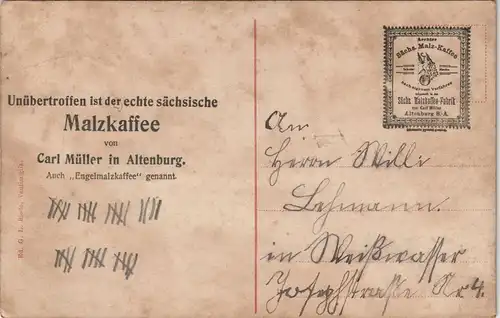 Unübertroffen ist der echte sächsische
Malzkaffee
von
Carl Müller in Altenburg.
Auch „Engelmalzkaffee“ genannt.
Aechter
Sächs. Malz-Kaffee
Sächs. Malzkaffee-Fabrik
von Carl Müller
Altenburg S/A.
An
Herrn Willi
Lehmann.
in Weißwasser
Josephstraße Nr 4.